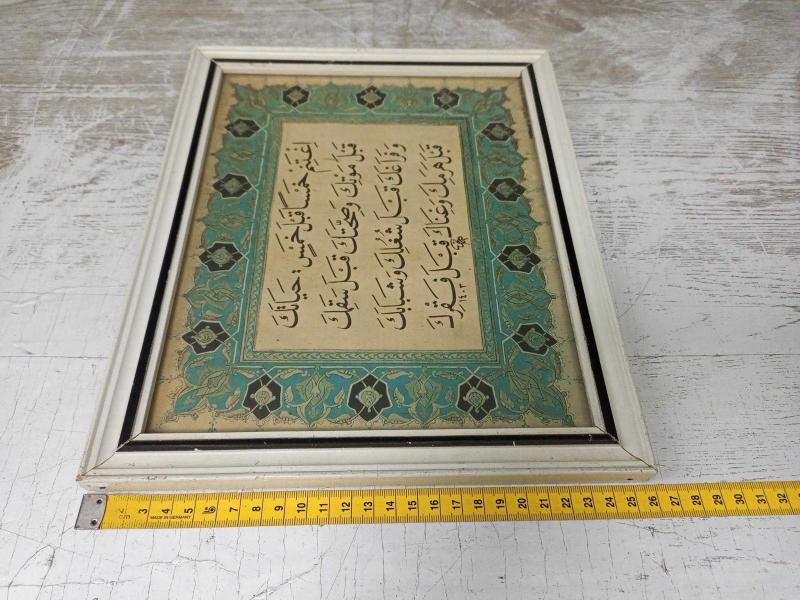 اِغْتَنِمْ خَمْسًا قَبْلَ خَمْسٍ : حَيَاتَكَ
قَبْلَ مَوْتِكَ وَصِحَّتَكَ قَبْلَ سَقَمِكَ
وَفَرَاغَكَ قَبْلَ شُغْلِكَ وَشَبَابَكَ
قَبْلَ هَرَمِكَ وَغِنَاكَ قَبْلَ فَقْرِكَ
١٤٠٣
3 4 5 7 8 9 10 11 12 13 14 15 16 17 18 19 20 21 22 23 24 25 26 27 28 29 30 31 32
MADE IN GERMANY